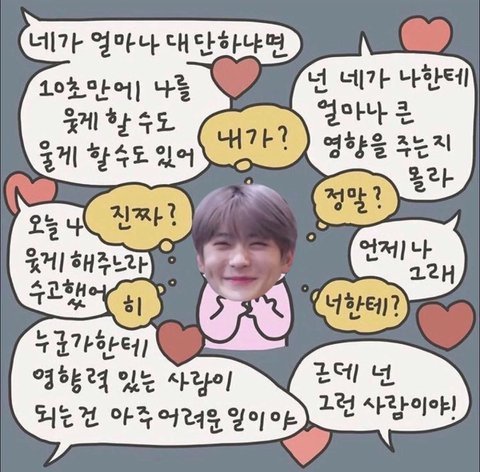 네가 얼마나 대단하냐면
10초만에 나를
웃게 할 수도
울게 할 수도 있어
내가?
넌 네가 나한테
얼마나 큰
영향을 주는지
몰라
진짜?
정말?
오늘 나
웃게 해주느라
수고했어
언제나
그래
히
너한테?
누군가한테
영향력 있는 사람이
되는건 아주 어려운 일이야
근데 넌
그런 사람이야!